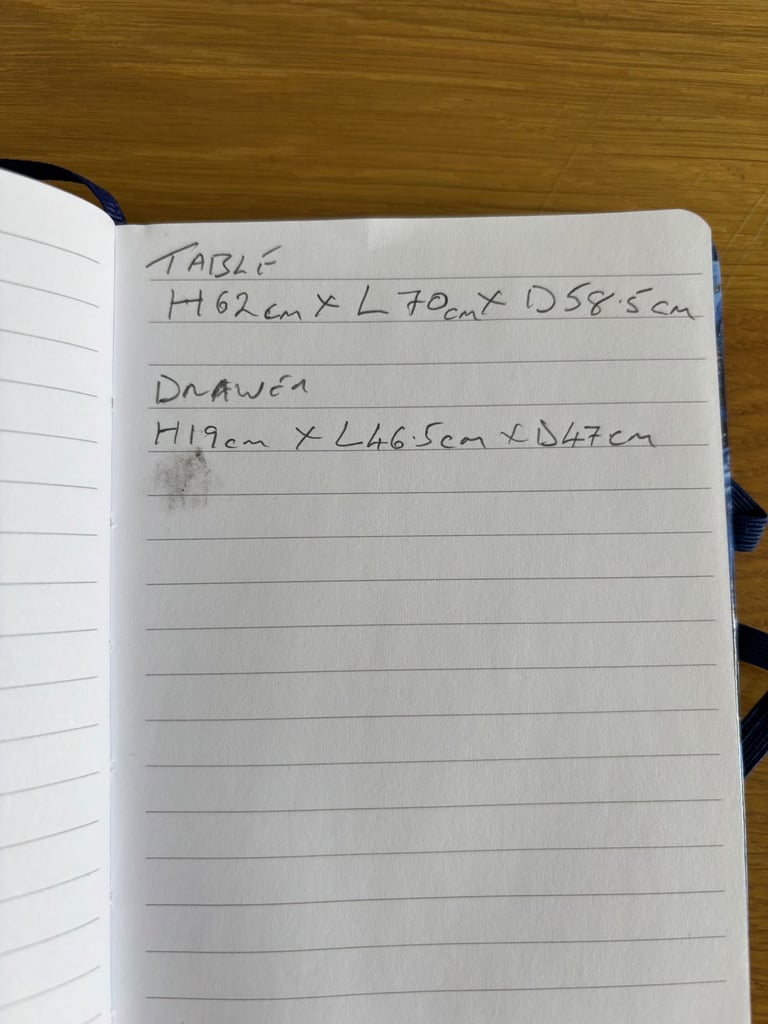 TABLE
H62cm X L 70cm X D58.5cm
DRAWER
H19cm X L46.5cm X D47cm